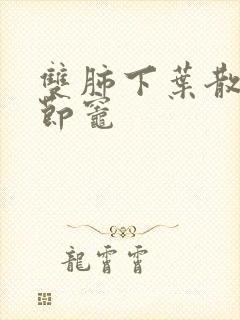 雙肺下葉散
節竈
龍霄霄